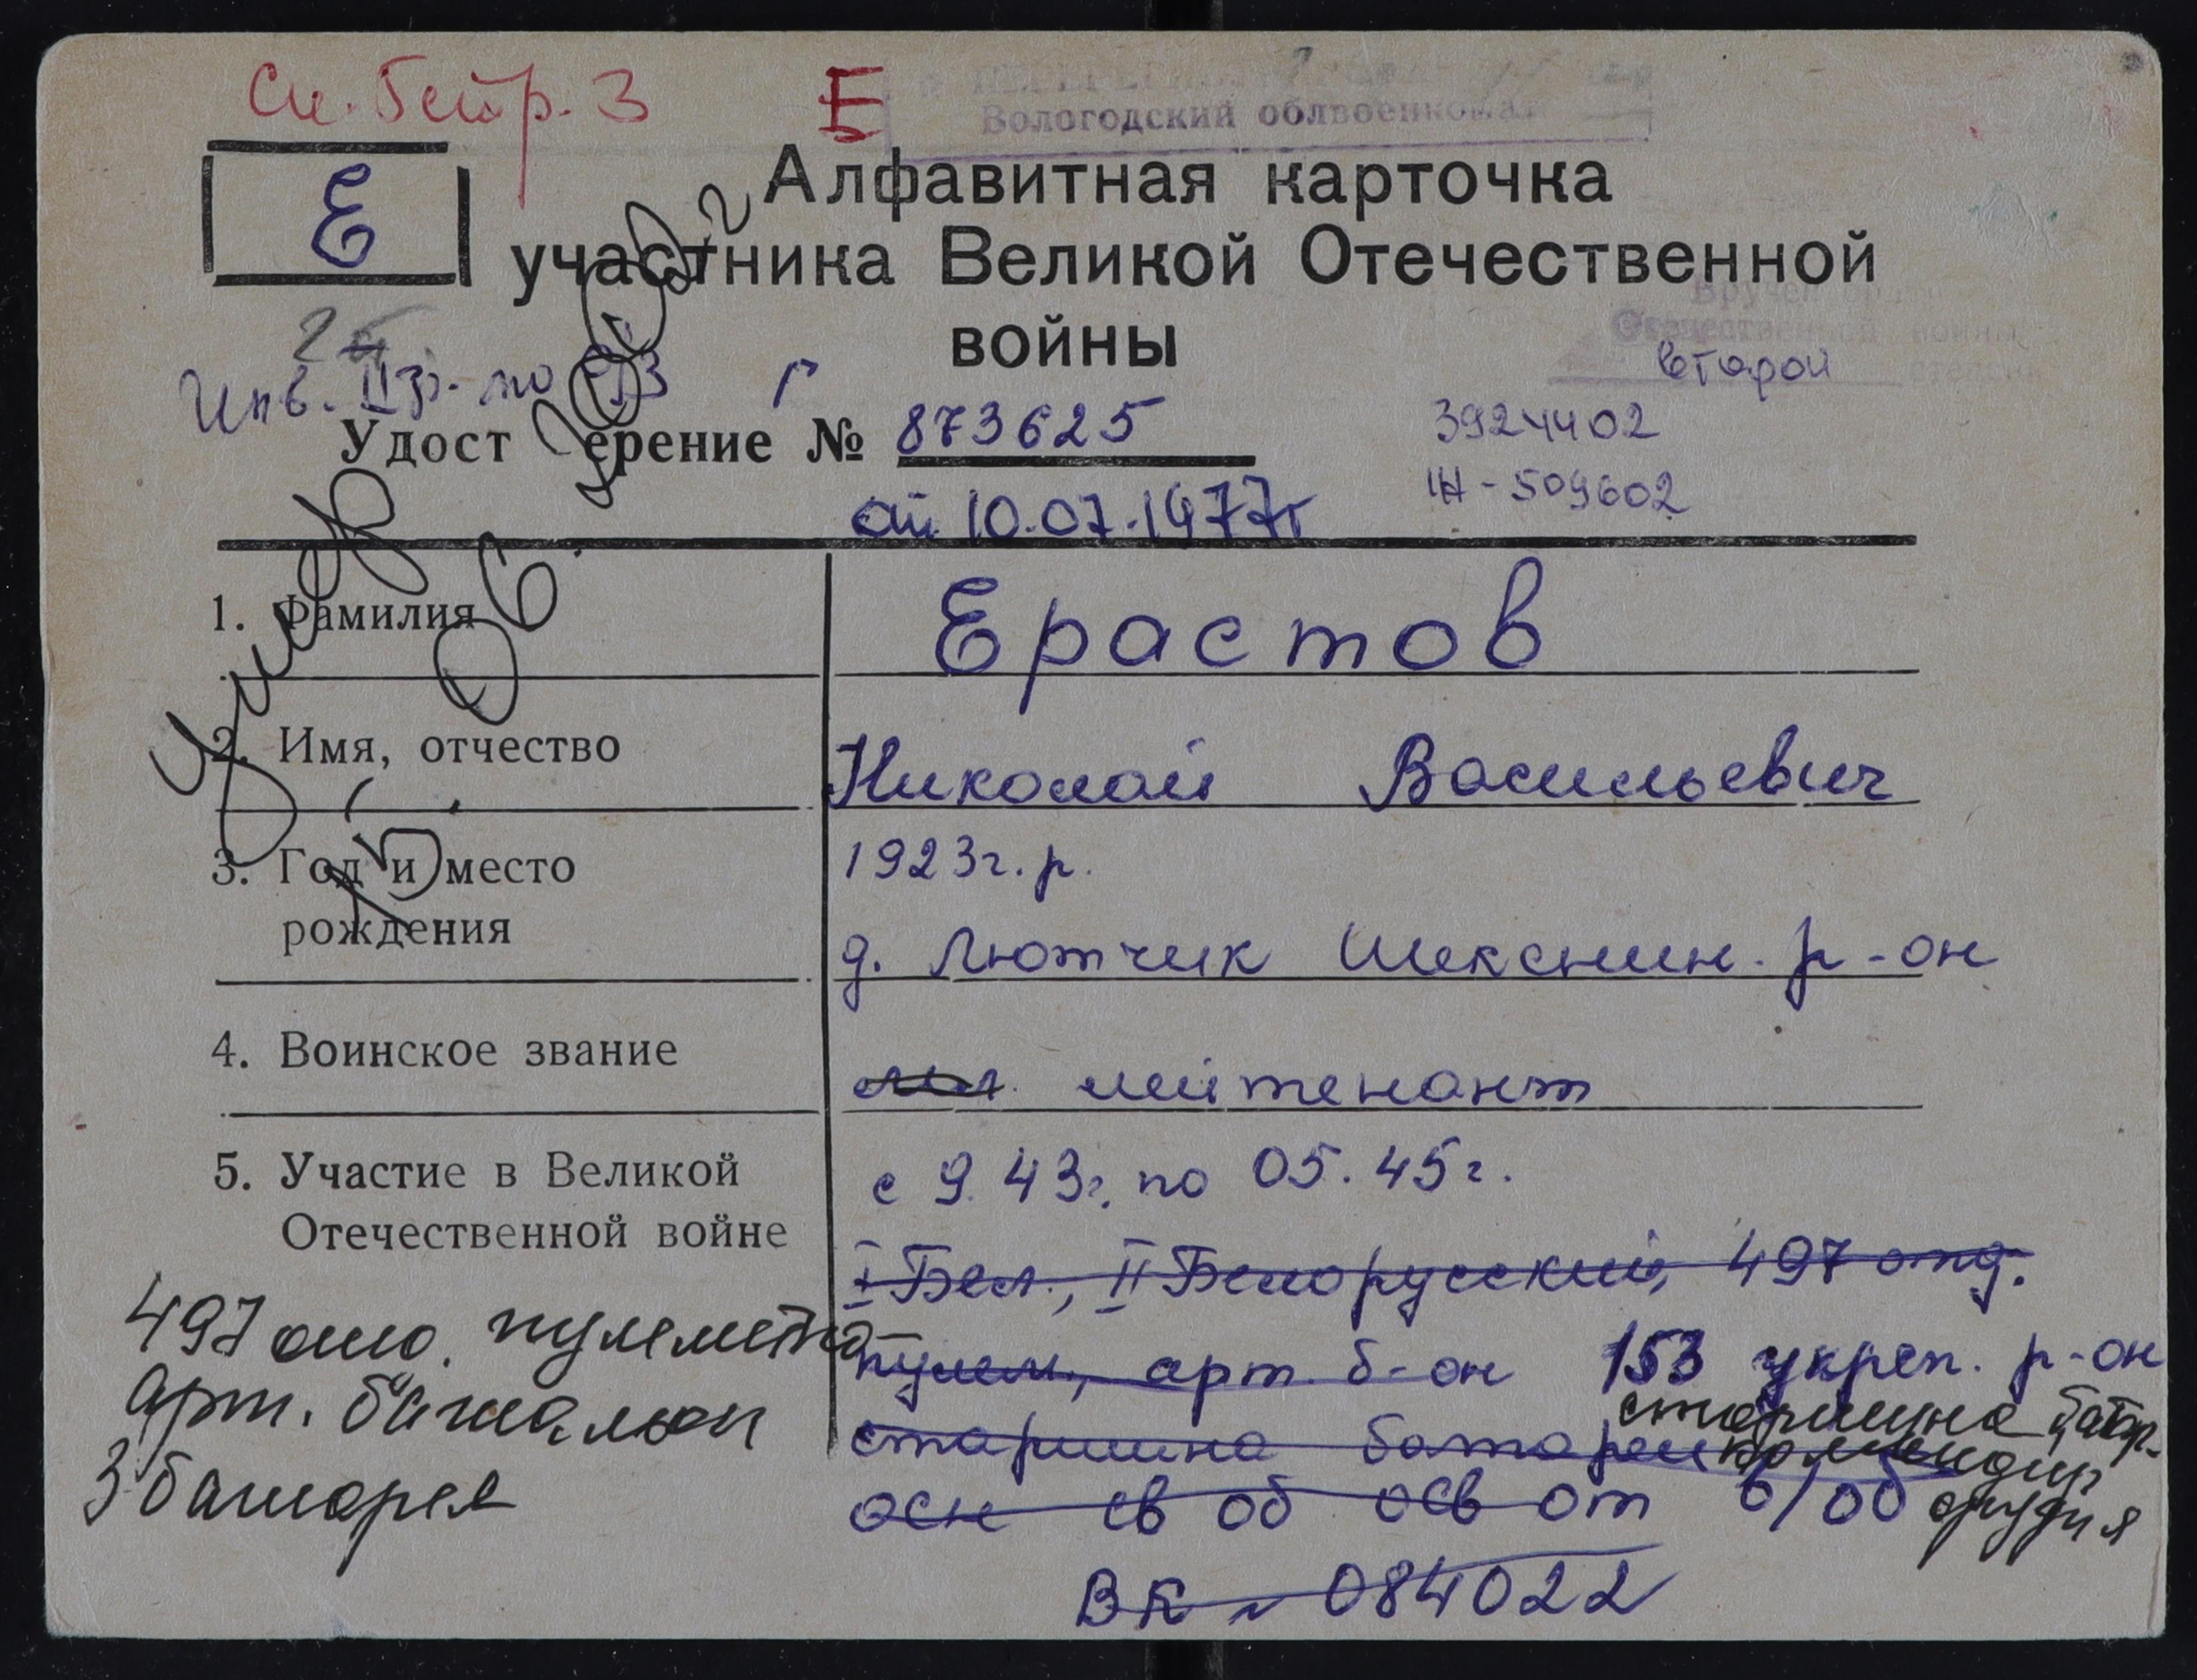 Е
Вологодский облвоенкомат
Алфавитная карточка
Е
участника Великой Отечественной
войны
Вручен орден
Отечественной войны
второй степени
Инв. II гр. по
Удостоверение № 873625
3924402
от 10.07.1977г
Умер
1. Фамилия Ерастов
2. Имя, отчество Николай Васильевич
3. Год и место 1923г. р.
рождения д. Лютчик Шекснин. р-он
4. Воинское звание мл. лейтенант
5. Участие в Великой с 9.43г. по 05.45г.
Отечественной войне I Бел., II Белорусский, 497 отд.
497 отд. пулеметно пулем, арт. б-он 153 укреп. р-он
арт. батальон
старшина батар.
старшина батареи командир
орудия
3 батарея
осн св об осв от в/об
ВК № 084022